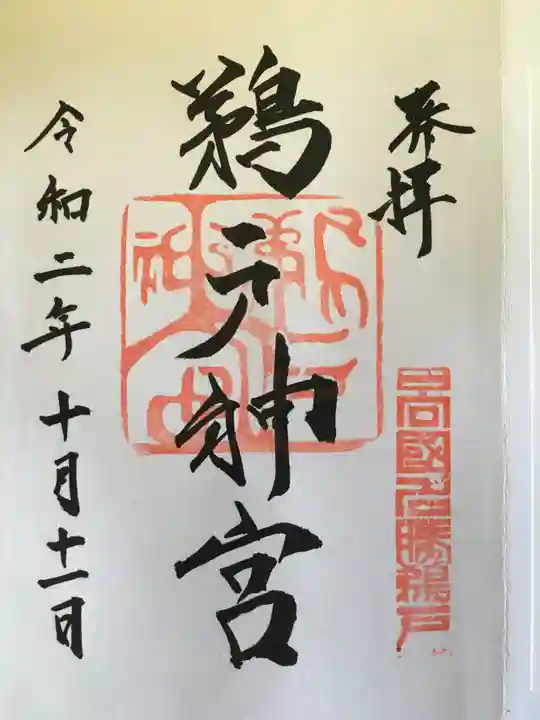 奉拝
日向國名勝鵜戸
鵜戸神宮
鵜戸神宮
令和二年十月十一日